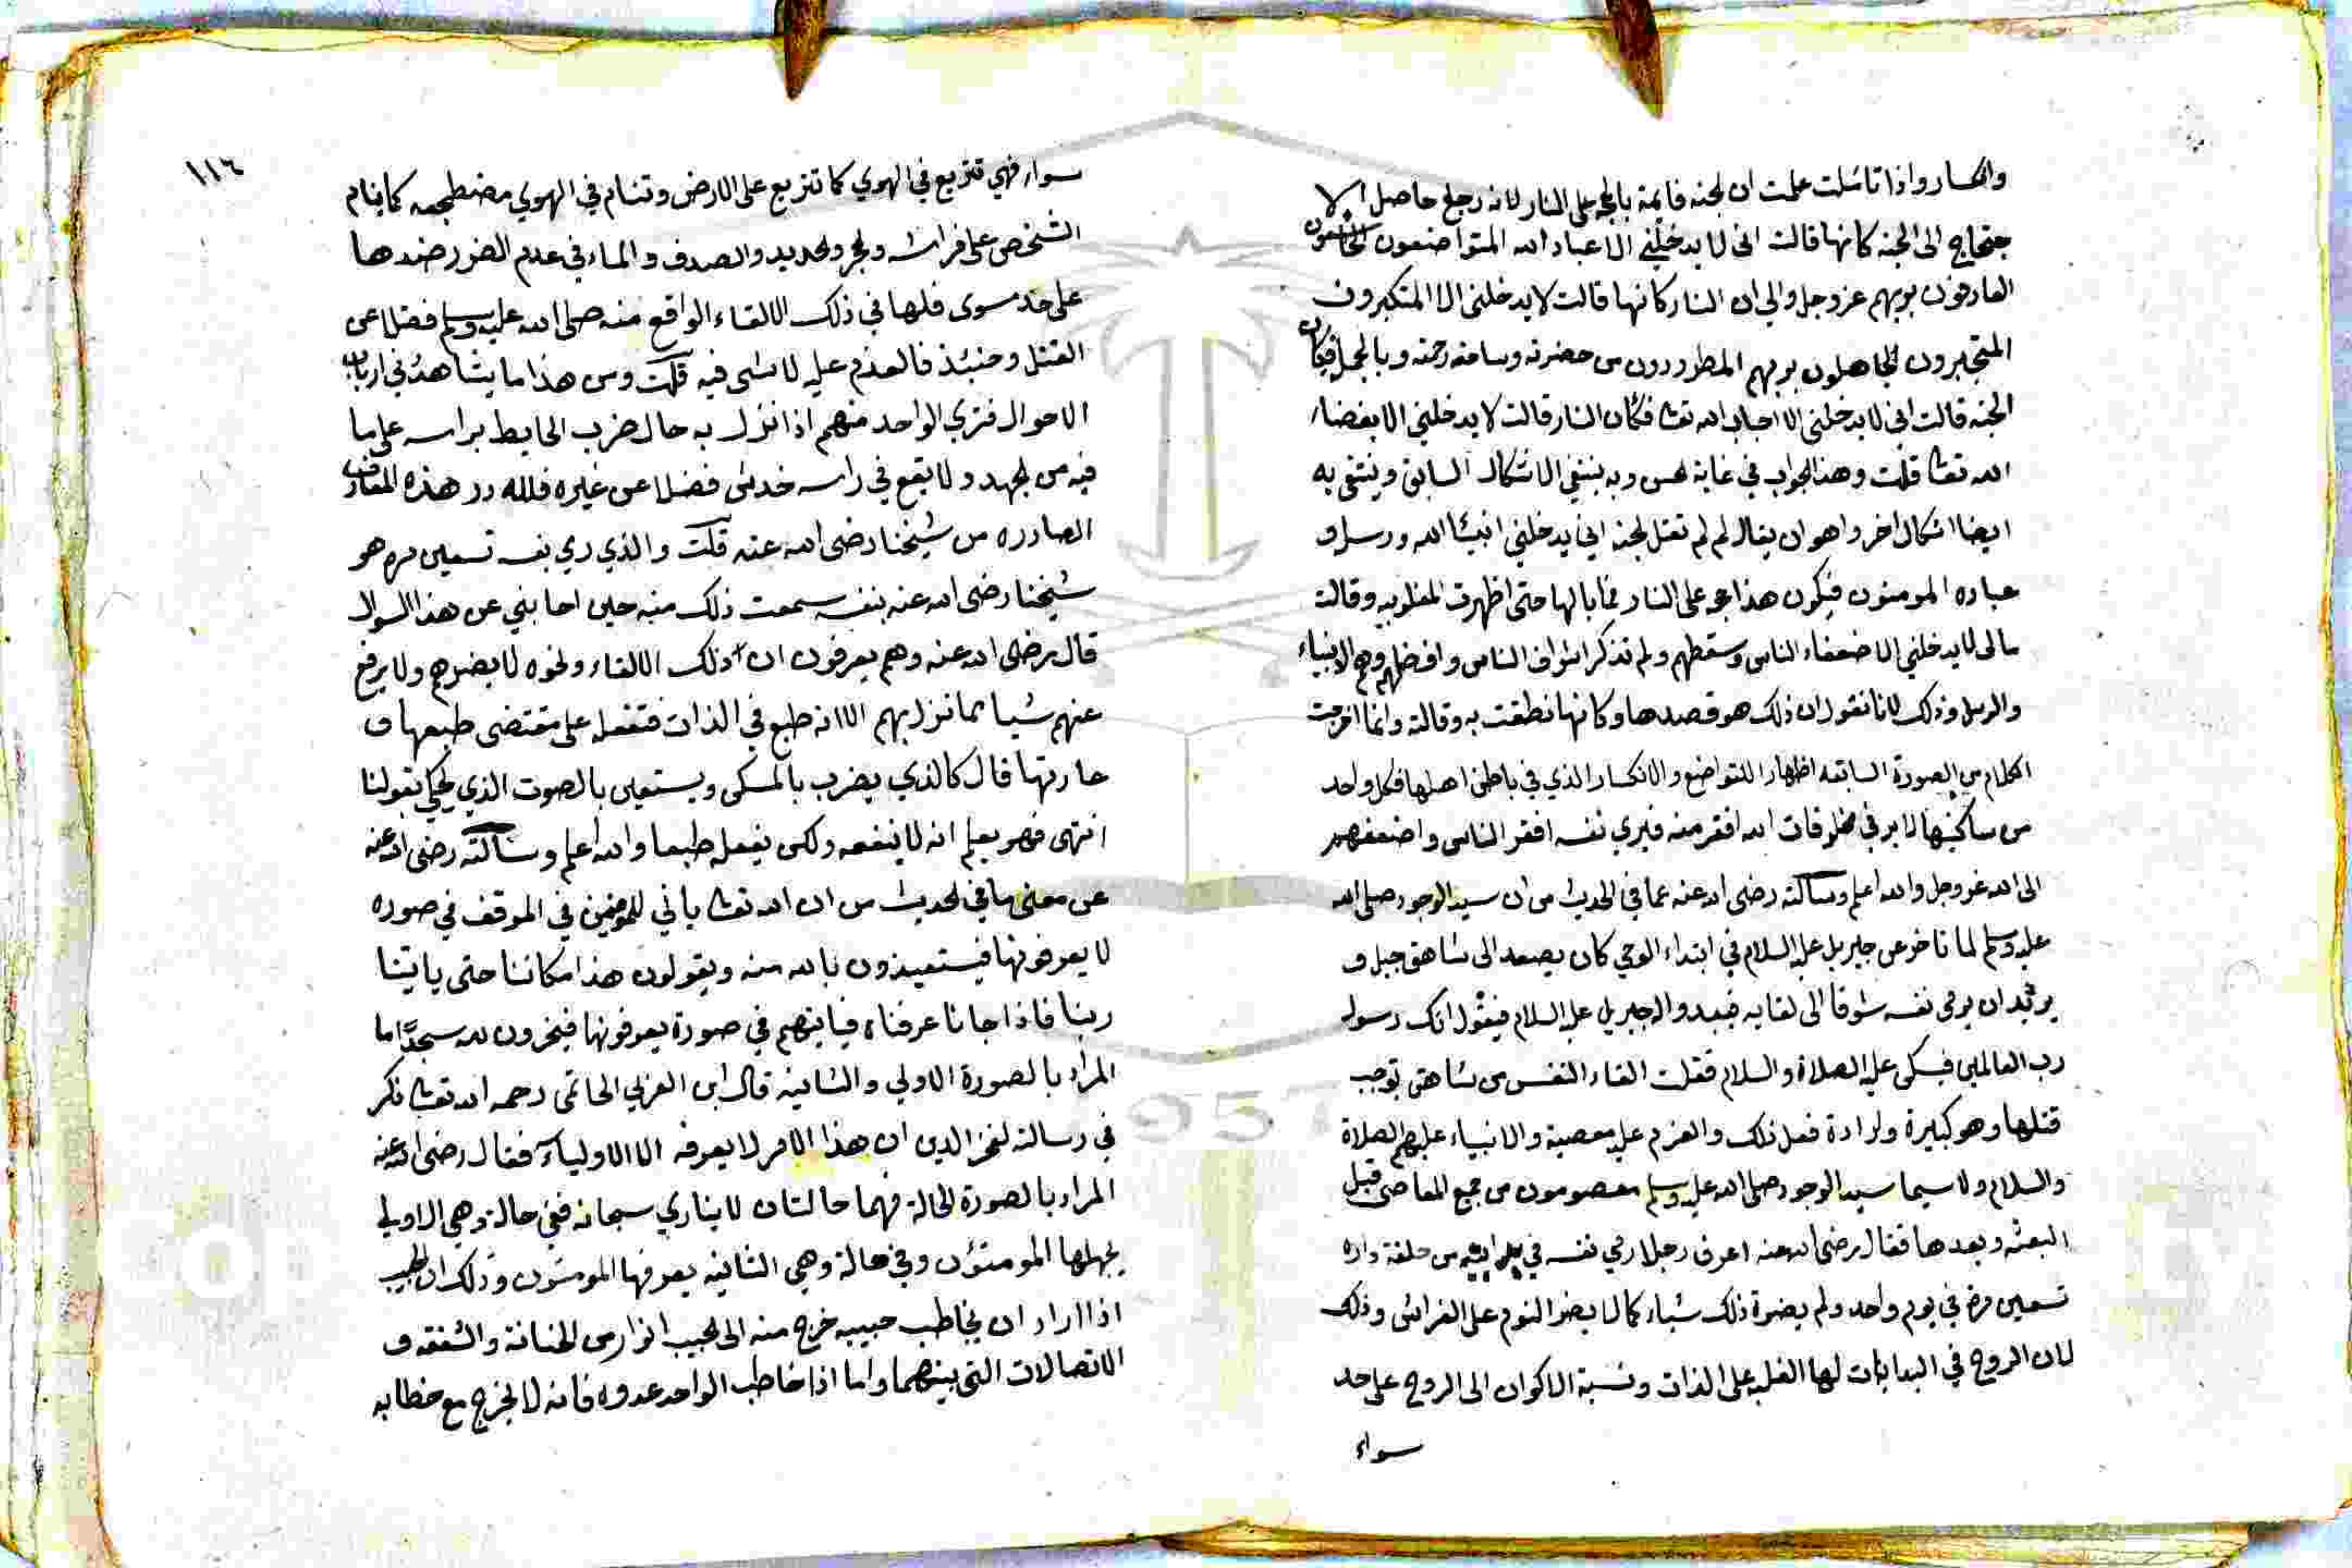 وانكسار واذا تاملت علمت ان الجنه قايمة بالحجه على النار لانه رجع حاصل الا
حتجاج الى الجنه كانها قالت انى لا يدخلني الا عباد الله المتواضعون الخاشعون
العارفون بربهم عز وجل والى ان النار كانها قالت لا يدخلنى الا المتكبرون
المتجبرون الجاهلون بربهم المطرودون من حضرته وساحة رحمته وبالجمله فكان
الجنه قالت انى لا يدخلنى الا احباب الله تعا فكان النار قالت لا يدخلني الا بغضاء
الله تعا قلت وهذا الجواب في غاية الحسن وبه ينتفي الاشكال السابق وينتفى به
ايضا اشكال اخر وهو ان يقال لم لم تقل الجنه اني يدخلني انبياء الله ورسله و
عباده المومنون فيكون هذا حجه على النار فما بالها حتى اظهرت المغلوبيه وقالت
مالى لا يدخلني الا ضعفاء الناس وسقطهم ولم تذكر اشراف الناس وافضلهم وهم الانبياء
والرسل وذلك لانا نقول ان ذلك هو قصدها وكانها نطقت به وقالته وانما اخرجت
الكلام من الصورة السابقه اظهارا للتواضع والانكسار الذي في باطن اهلها فكل واحد
من ساكنيها لا يرى في مخلوقات الله افقر منه فيرى نفسه افقر الناس واضعفهم
الى الله عز وجل والله اعلم وسالته رضى الله عنه عما في الحديث من ان سيد الوجود صلى الله
عليه وسلم لما تاخر عن جبريل عليه السلام في ابتداء الوحي كان يصعد الى شاهق جبل و
يريد ان يرمى نفسه شوقا الى لقايه فيبدو له جبريل عليه السلام فيقول انك رسول
رب العالمين فيسكن عليه الصلاة والسلام فقلت القاء النفس من شاهق توجب
قتلها وهو كبيرة وارادة فعل ذلك والعزم عليه معصية والانبياء عليهم الصلاة
والسلام ولا سيما سيد الوجود صلى الله عليه وسلم معصومون من جميع المعاصى قبل
البعثه وبعدها فقال رضى الله عنه اعرف رجلا رمي نفسه في بدايته من حلقة داره
تسعين مرة في يوم واحد ولم يضره ذلك شياء كما لا يضر النوم على الفراش وذلك
لان الروح في البدايات لها الغلبه على الذات ونسبة الاكوان الى الروح على حد
سواء
١١٦
سواء فهي تتربع في الهوي كما تتربع على الارض وتنام في الهوي مضطجعه كما ينام
الشخص على فراشه والحجر والحديد والصدف والماء في عدم الضرر ضدها
على حد سوى فلها في ذلك الالقاء الواقع منه صلى الله عليه وسلم فضلا عن
القتل وحينئذ فالعزم عليه لا شى فيه قلت ومن هذا ما يشاهد في ارباب
الاحوال فترى الواحد منهم اذا نزل به حال ضرب الحايط براسه على ما
فيه من الجهد ولا يقع في راسه خدش فضلا عن غيره فلله در هذه المعارف
الصادره من شيخنا رضى الله عنه قلت والذي رمي نفسه تسعين مره هو
شيخنا رضى الله عنه بنفسه سمعت ذلك منه حين اجابني عن هذا السوال
قال رضى الله عنه وهم يعرفون ان ذلك الالقاء ونحوه لا يضرهم ولا يرفع
عنهم شيا مما نزل بهم الا انه طبع في الذات فتفعله على مقتضى طبعها و
عادتها قال كالذي يضرب بالمسكى ويستعين بالصوت الذي يحكي بقولنا
انتهى فهو يعلم انه لا ينفعه ولكن يفعله طبعا والله اعلم وسالته رضى الله عنه
عن معنى ما في الحديث من ان الله تعا ياتي للمومنين في الموقف في صوره
لا يعرفونها فيستعيذون بالله منه ويقولون هذا مكاننا حتى ياتينا
ربنا فاذا جانا عرفناه فياتيهم في صورة يعرفونها فيخرون لله سجدا ما
المراد بالصورة الاولي والثانيه قال ابن العربي الحاتمى رحمه الله تعا ذكر
في رسالته لفخر الدين ان هذا الامر لا يعرفه الا الاولياء فقال رضى الله عنه
المراد بالصورة الحالة فهما حالتان للباري سبحانه ففي حالة وهي الاولي
يجهلها المومنون وفي حالة وهي الثانيه يعرفها المومنون وذلك ان الحبيب
اذا اراد ان يخاطب حبيبه خرج منه الى الحبيب انوار من الحنانة والشفقه و
الاتصالات التى بينهما واما اذا خاطب الواحد عدوه فانه لا يخرج مع خطابه